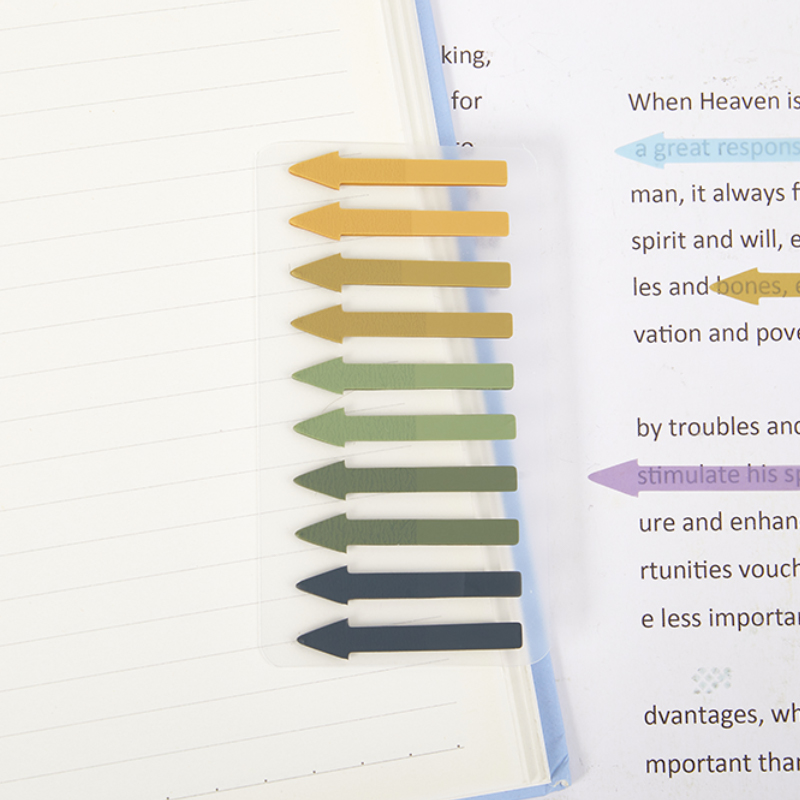 king,
for
When Heaven is
a great respons
man, it always f
spirit and will, e
les and bones, e
vation and pove
by troubles and
stimulate his sp
ure and enhan
rtunities vouch
e less importa
dvantages, wh
mportant than